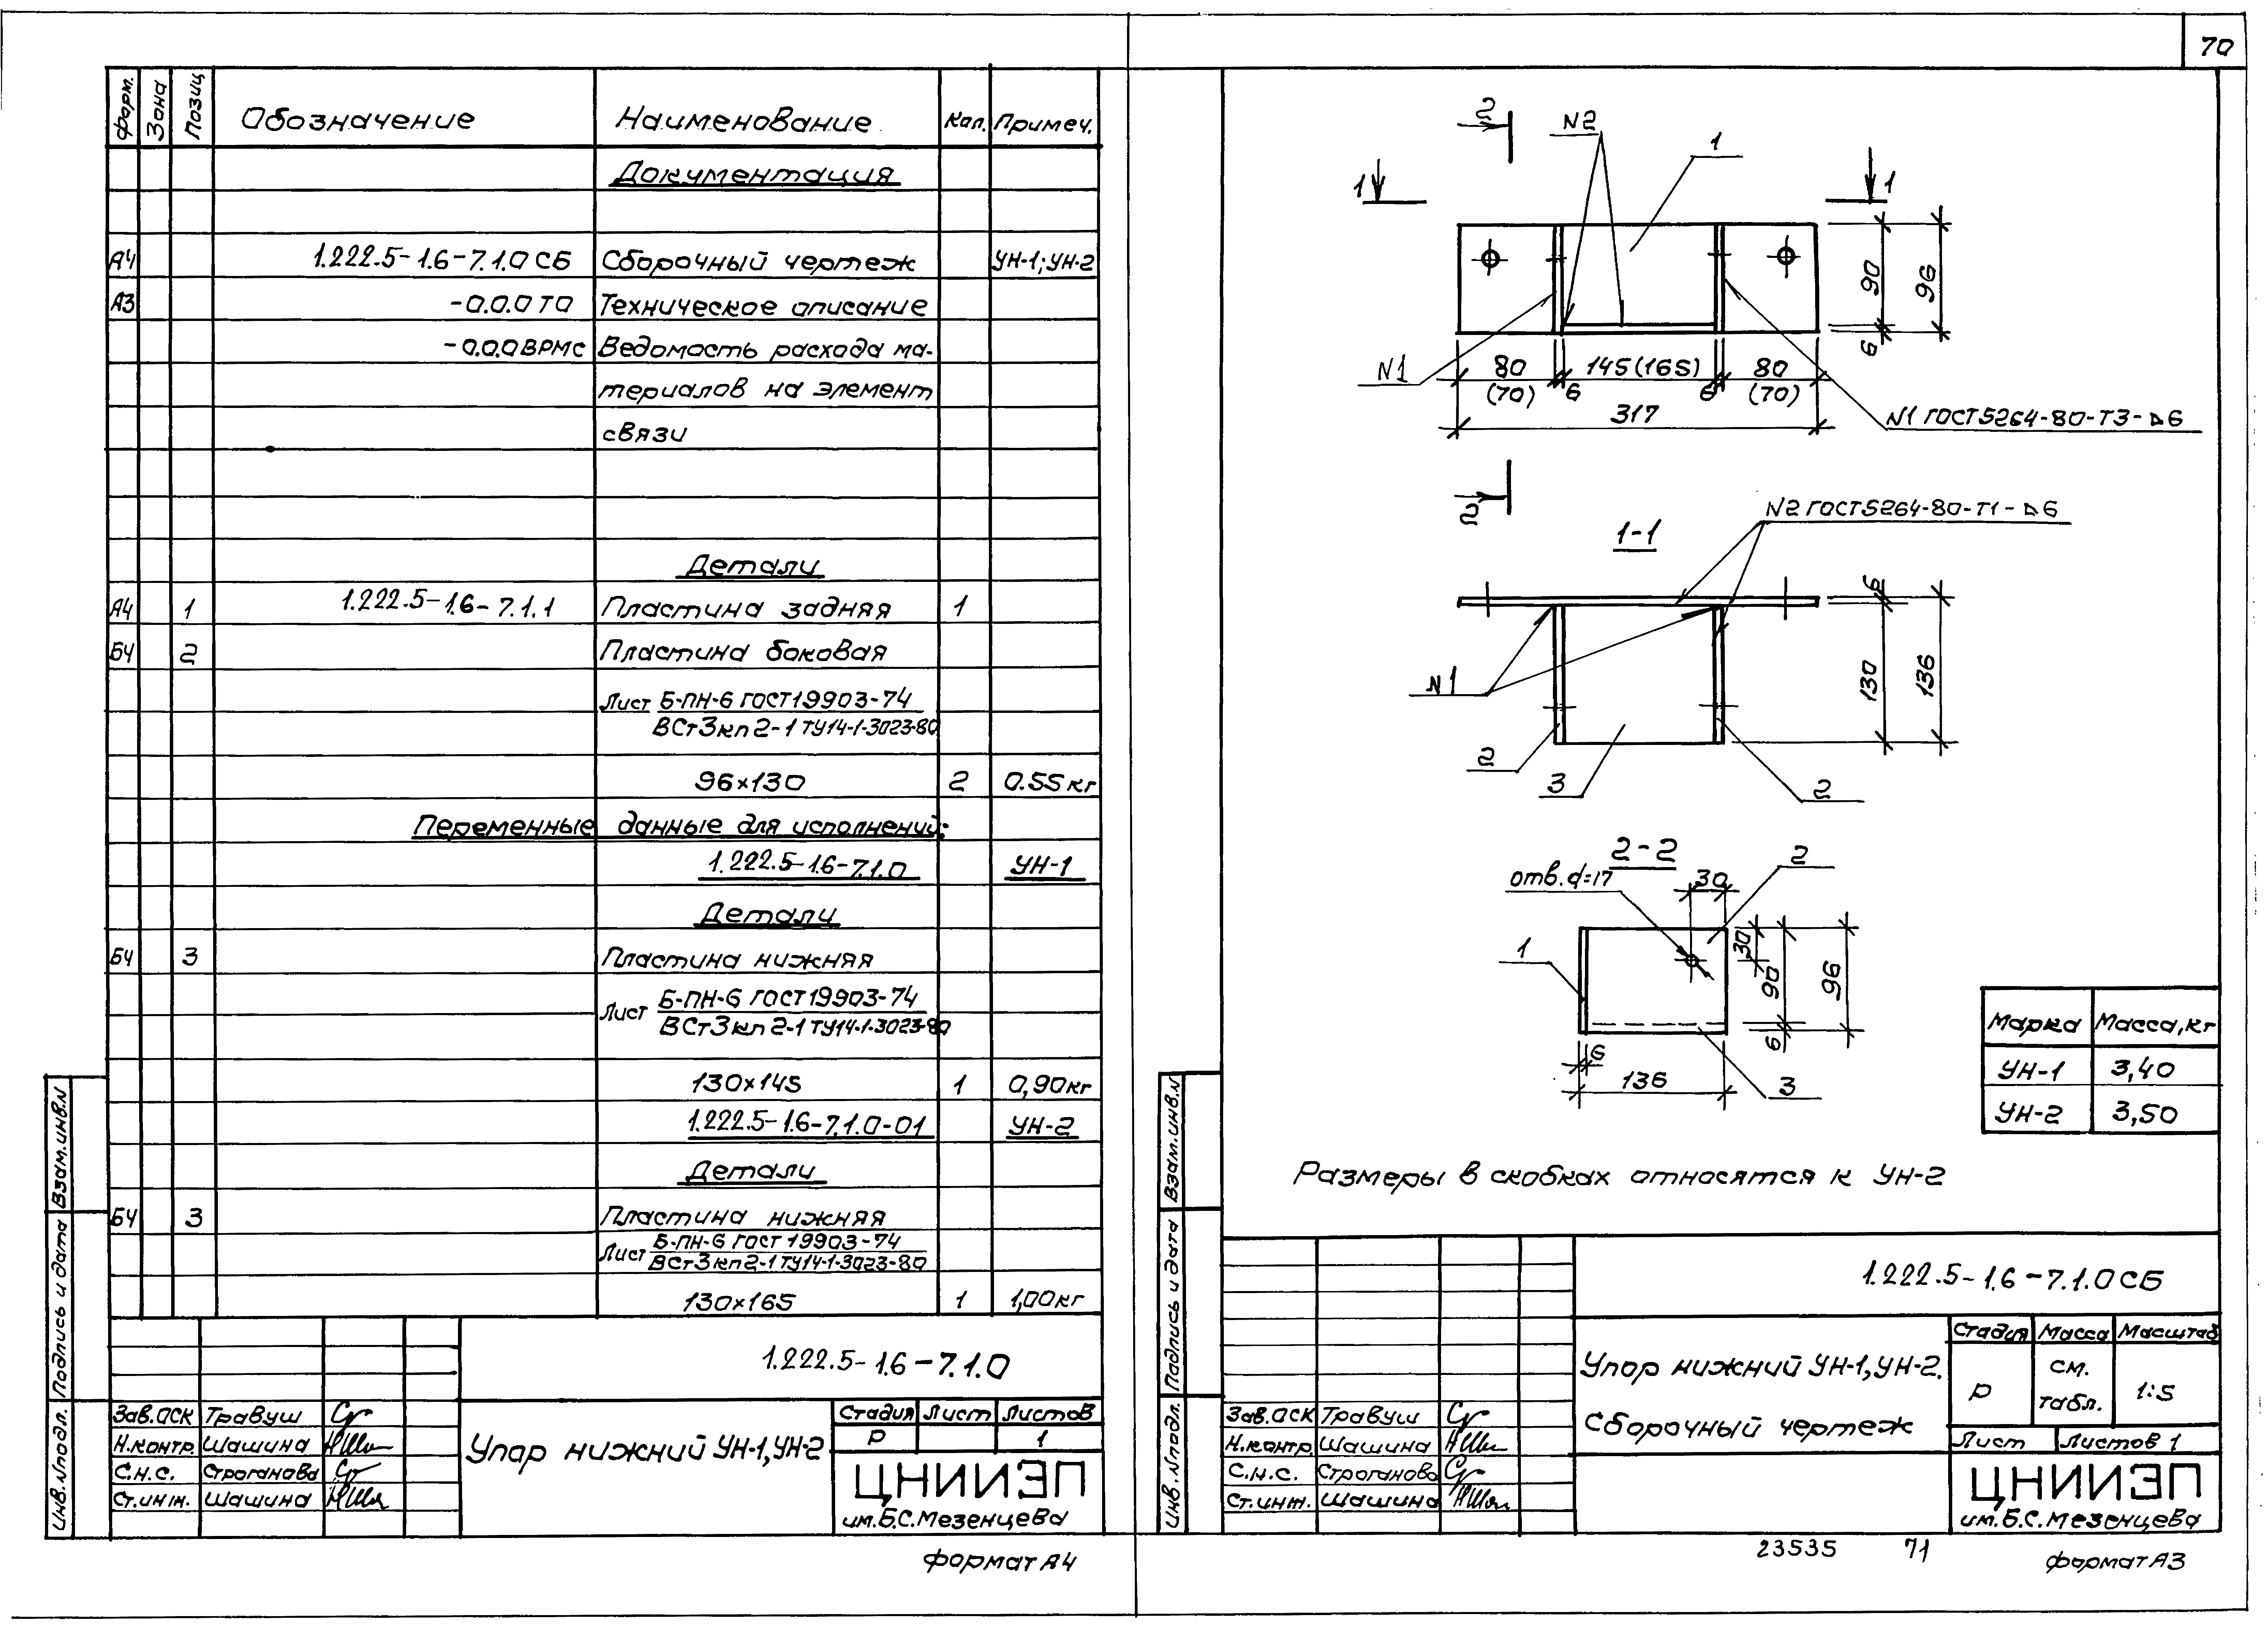 70
Форм.
Зона
Позиц
Обозначение
Наименование
Кол.
Примеч.
Документация
А4 1.222.5-1.6-7.1.0 СБ Сборочный чертеж УН-1; УН-2
А3 -0.0.0 ТО Техническое описание
-0.0.0 ВРМС Ведомость расхода ма-
териалов на элемент
связи
Детали
А4 1 1.222.5-1.6-7.1.1 Пластина задняя 1
БЧ 2 Пластина боковая
Лист Б-ПН-6 ГОСТ 19903-74
ВСт3кп2-1 ТУ14-1-3023-80
96×130 2 0.55 кг
Переменные данные для исполнений:
1.222.5-1.6-7.1.0 УН-1
Детали
БЧ 3 Пластина нижняя
Лист Б-ПН-6 ГОСТ 19903-74
ВСт3кп2-1 ТУ14-1-3023-80
130×145 1 0,90кг
1.222.5-1.6-7.1.0-01 УН-2
Детали
БЧ 3 Пластина нижняя
Лист Б-ПН-6 ГОСТ 19903-74
ВСт3кп2-1 ТУ14-1-3023-80
130×165 1 1,00кг
1.222.5-1.6-7.1.0
Зав.ОСК Травуш
Н.контр. Шашина
С.н.с. Строганова
Ст.инж. Шашина
Упор нижний УН-1, УН-2
Стадия Лист Листов
Р 1
ЦНИИЭП
им. Б.С. Мезенцева
Взам.инв.N
Подпись и дата
Инв.Nподл.
формат А4
2
N2
1
1
1
90
96
6
N1
80 145(165) 80
(70) 6 6 (70)
317
N1 ГОСТ 5264-80-Т3-⊿6
2
1-1
N2 ГОСТ 5264-80-Т1-⊿6
6
130
136
N1
2
3
2
2-2
отв. d=17
30
2
1
30
90
96
6
6
136
3
Марка Масса, кг
УН-1 3,40
УН-2 3,50
Размеры в скобках относятся к УН-2
1.222.5-1.6-7.1.0 СБ
Зав.ОСК Травуш
Н.контр. Шашина
С.н.с. Строганова
Ст.инж. Шашина
Упор нижний УН-1, УН-2.
Сборочный чертеж
Стадия Масса Масштаб
Р см. табл. 1:5
Лист Листов 1
ЦНИИЭП
им. Б.С. Мезенцева
Взам.инв.N
Подпись и дата
Инв.Nподл.
23535 71
формат А3